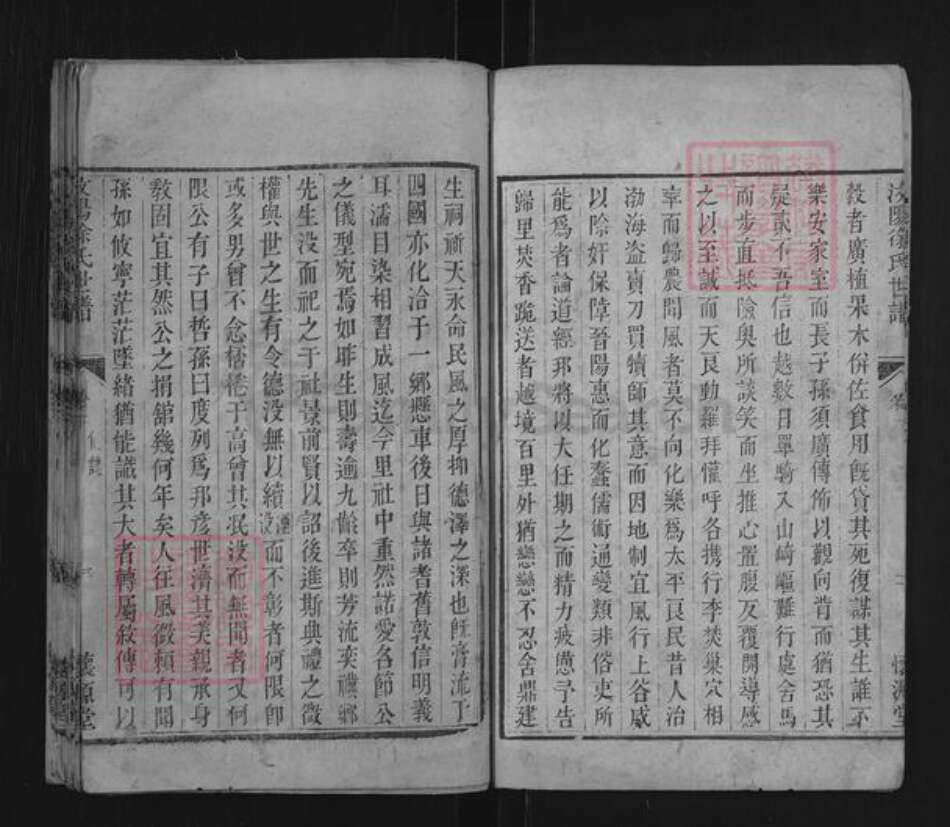 徐氏世譜
穀者廣植果木併佐食用旣貸其死復謀其生誰不
樂安家室而長子孫須廣傳佈以觀向背而猶恐其
疑貳不吾信也越數日單騎入山崎嶇難行處舍馬
而步直抵險奧所談笑而坐推心置腹反覆開導感
之以至誠而天良動羅拜懽呼各携行李焚巢穴相
率而歸農聞風者莫不向化樂爲太平良民昔人治
渤海盜賣刀買犢師其意而因地制宜風行上谷威
以除奸保障晉陽惠而化蠢儒術通變類非俗吏所
能爲者論道經邦將以大任期之而精力疲憊予告
歸里焚香跪送者越境百里外猶戀戀不忍舍鼎建
生祠祈天永命民風之厚抑德澤之深也旣膏流于
四國亦化洽于一鄉懸車後日與諸耆舊敦信明義
耳濡目染相習成風迄今里社中重然諾愛名節公
之儀型宛焉如昨生則壽逾九齡卒則芳流奕禩鄉
先生没而祀之于社景前賢以詔後進斯典禮之微
權與世之生有令德没無以績而不彰者何限卽
或多男曾不念桮棬于高曾其泯没而無聞者又何
限公有子曰哲孫曰度列爲邦彥世濟其美親承身
敎固宜其然公之捐舘幾何年矣人往風微頼有聞
孫如攸寧茫茫墜緒猶能識其大者轉屬敘傳可以
徐氏世譜
三
懷源堂